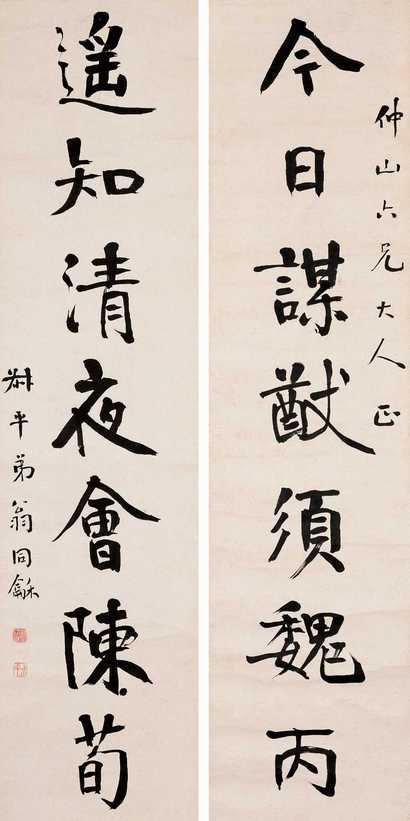 仲山六兄大人正
今日謀猷須魏丙
遙知清夜會陳荀
叔平弟翁同龢